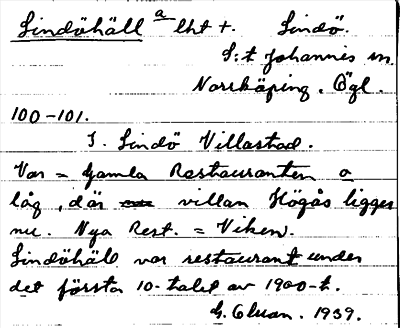 Lindöhäll a lht +. Lindö.
S:t Johannis sn.
Norrköping. Ögl.
100-101.
I. Lindö Villastad.
Var = Gamla Restauranten o
låg, där villan Högås ligger
nu. Nya Rest. = Viken.
Lindöhäll var restaurant under
det första 10-talet av 1900-t.
G. Cluan. 1939.